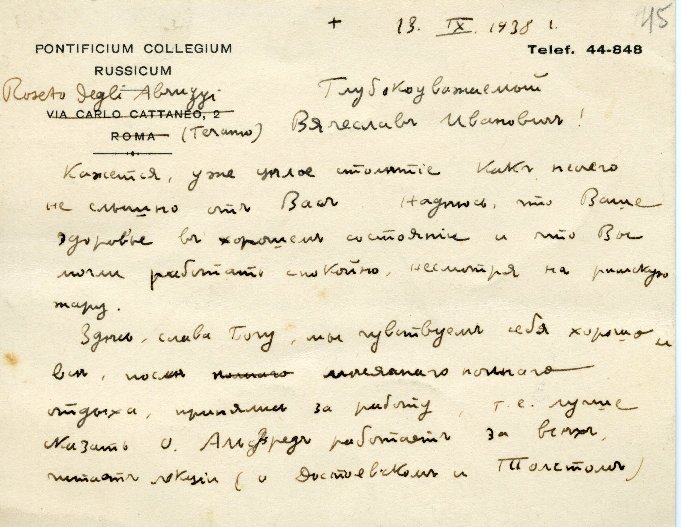 + 13. IX. 1938 г. 45
PONTIFICIUM COLLEGIUM
RUSSICUM
Telef. 44-848
Roseto degli Abruzzi
VIA CARLO CATTANEO, 2
ROMA (Teramo)
Глубокоуважаемый
Вячеславъ Ивановичъ!
Кажется, уже цѣлое столѣтіе какъ ничего
не слышно отъ Васъ. Надѣюсь, что Ваше
здоровье въ хорошемъ состояніи и что Вы
могли работать спокойно, несмотря на римскую
жару.
Здѣсь, слава Богу, мы чувствуемъ себя хорошо и
всѣ, послѣ полнаго мѣсячнаго полнаго
отдыха, принялись за работу, т.е. лучше
сказать о. Альфредъ работаетъ за всѣхъ,
читаетъ лекціи (о Достоевскомъ и Толстомъ)